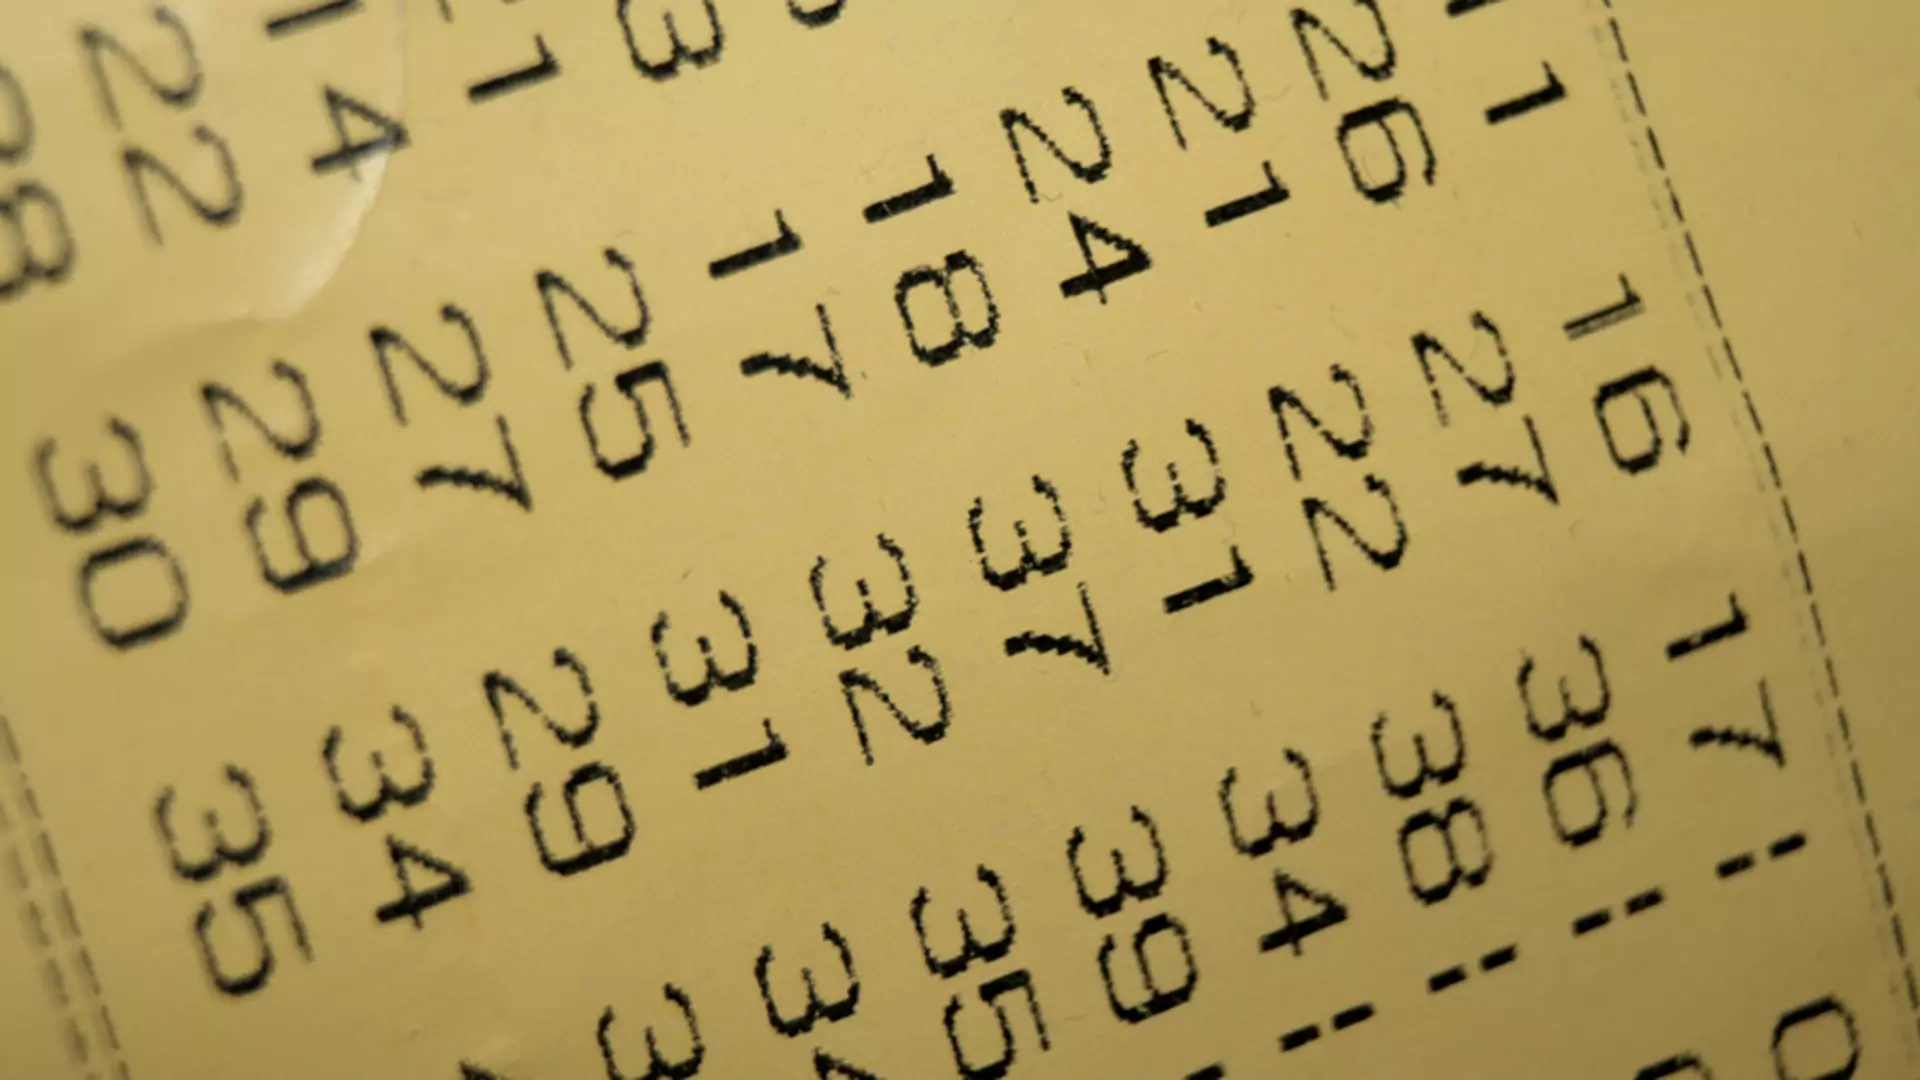 11 16 17
26 27 36
21 22 38
24 31 34
18 37 39
17 32 35
25 31
14 27 29
22 29 34
28 30 35